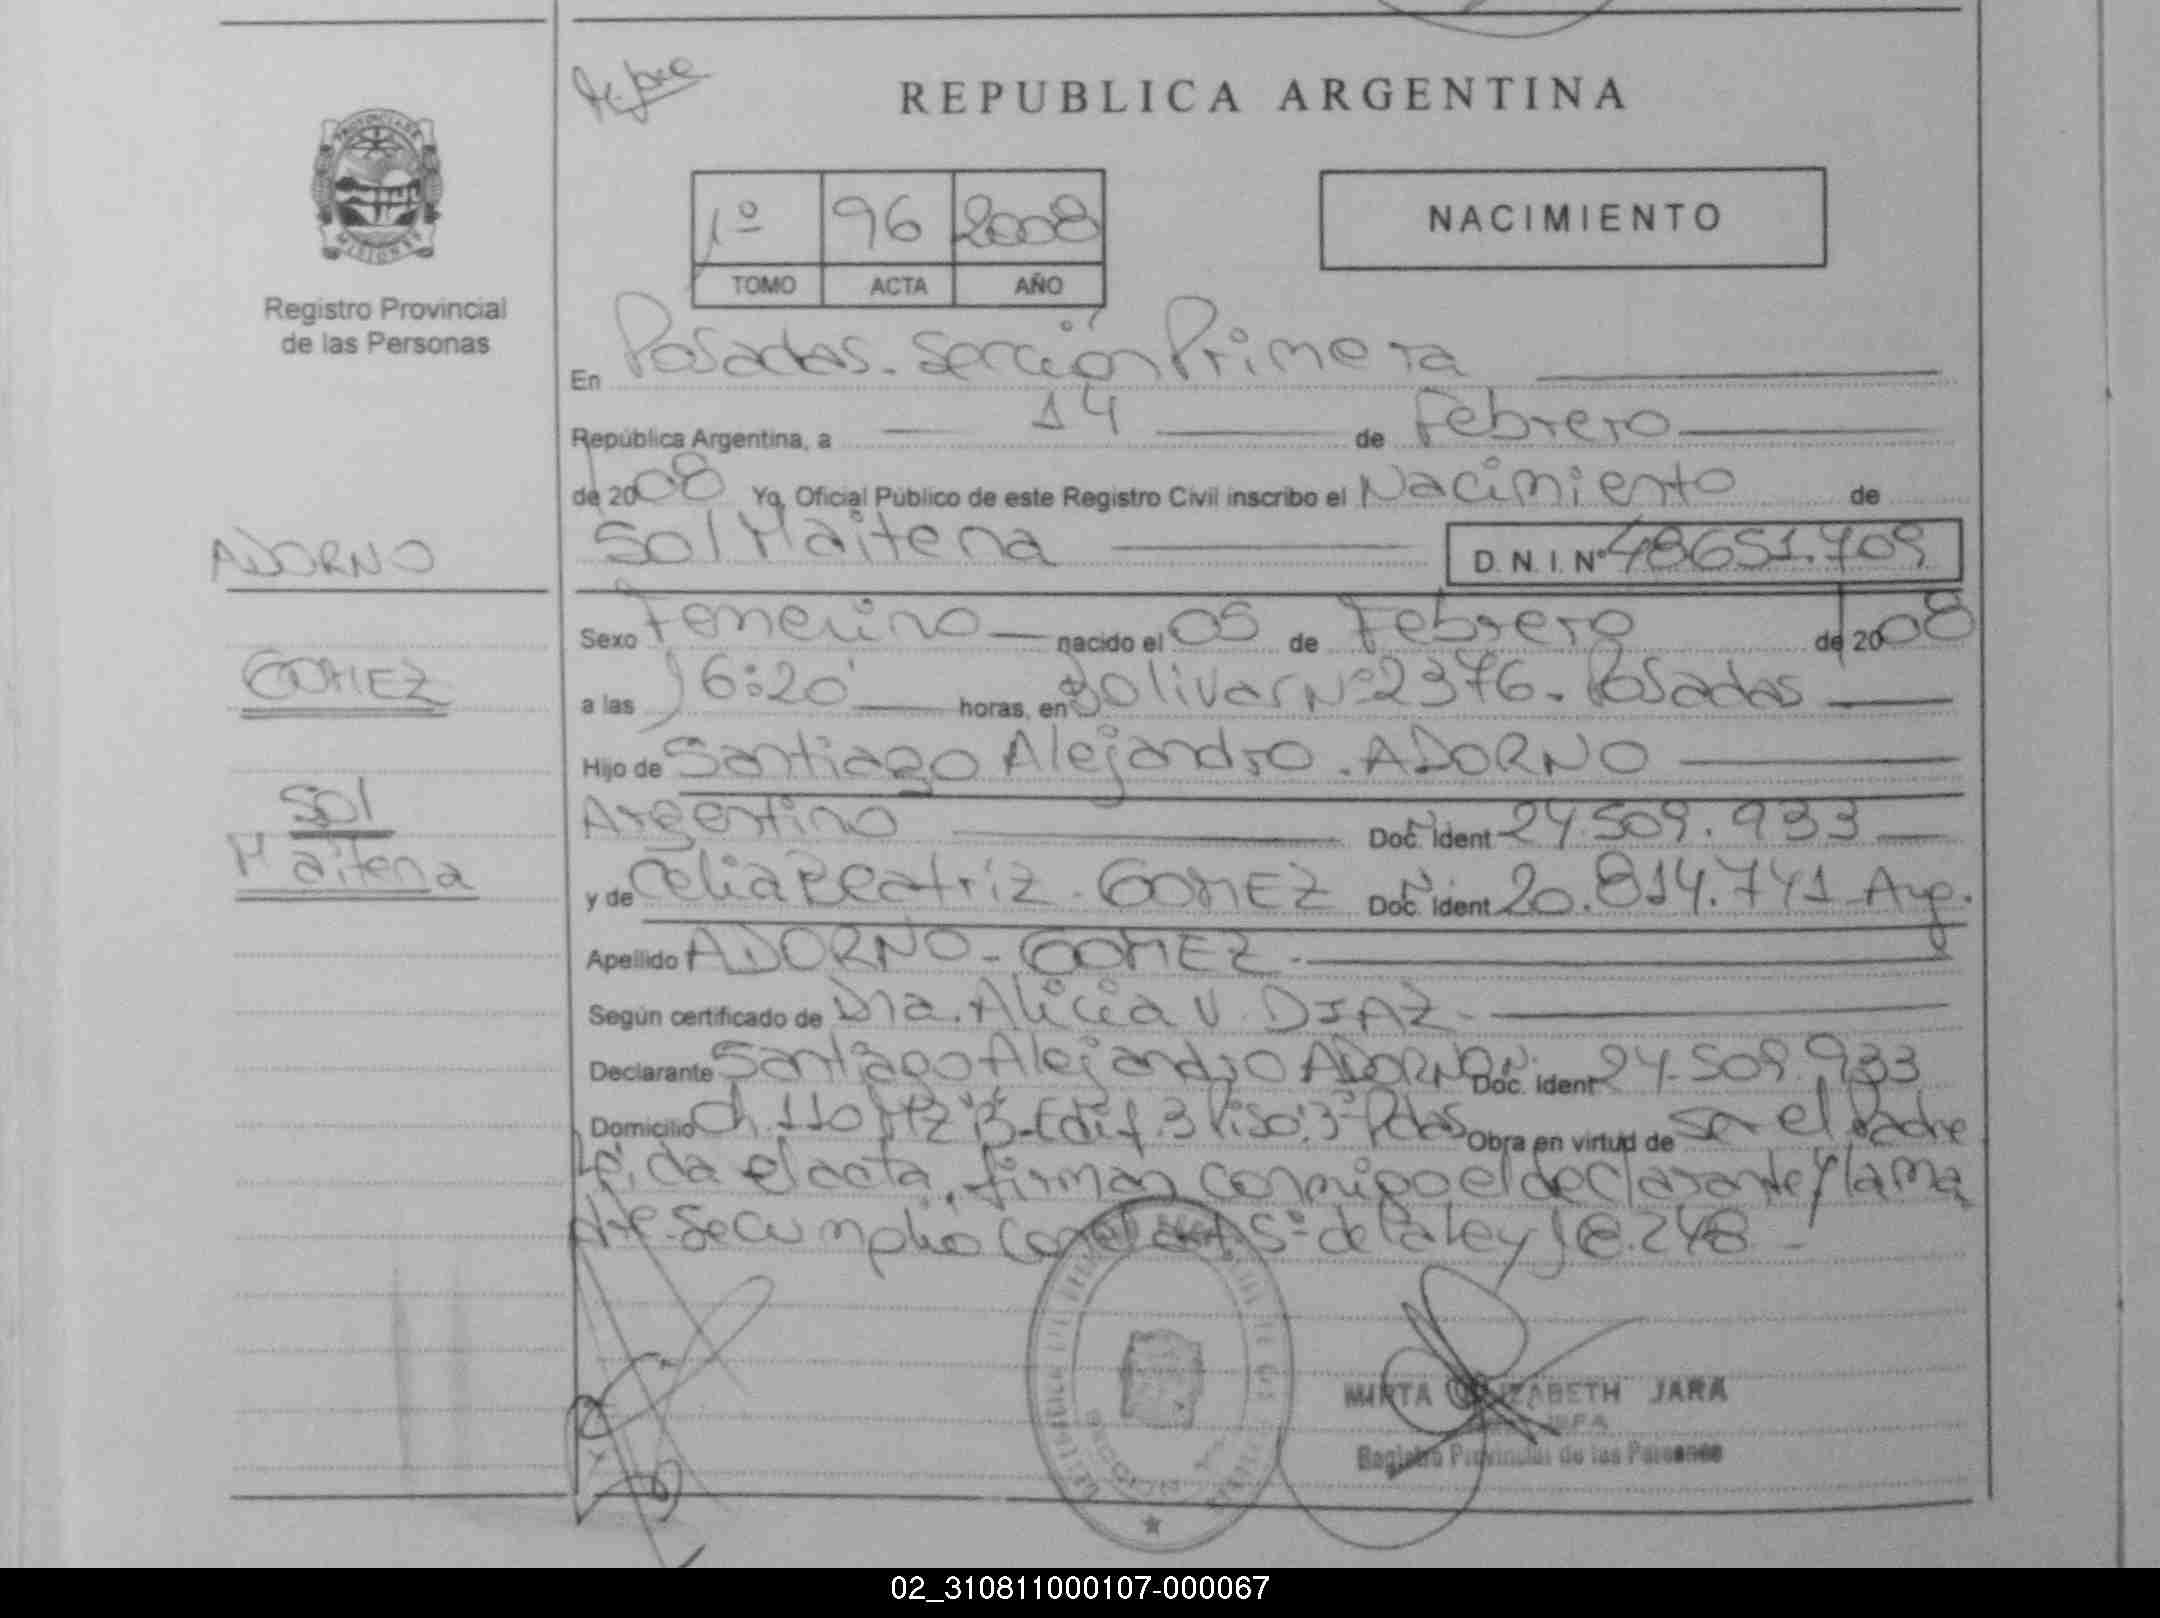 REPUBLICA ARGENTINA
PROVINCIA DE
MISIONES
Registro Provincial
de las Personas
1º 96 2008
TOMO ACTA AÑO
NACIMIENTO
En Posadas. Sección Primera
República Argentina, a 14 de Febrero
de 2008 Yo, Oficial Público de este Registro Civil inscribo el Nacimiento de
ADORNO
Sol Maitena D. N. I. Nº 48651.709
Sexo Femenino nacido el 05 de Febrero de 2008
GOMEZ
a las 16:20 horas, en Bolivar Nº 2376. Posadas
Hijo de Santiago Alejandro. ADORNO
Sol
Maitena
Argentino Doc. Ident 24.509.933
y de Celia Beatriz. GOMEZ Doc. Ident 20.814.741 Arg.
Apellido ADORNO - GOMEZ.
Según certificado de Dra. Alicia V. DIAZ
Declarante Santiago Alejandro ADORNO Doc. Ident 24.509.933
Domicilio Ch. 110 Mz "B" Edif. 3 Piso: 3º Pdas Obra en virtud de ser el Padre
Leida el acta, firman conmigo el declarante y la ma
dre. Se cumplió con el art. 5º de la ley 18.248
MIRTA ELIZABETH JARA
JEFA
Registro Provincial de las Personas
02_310811000107-000067